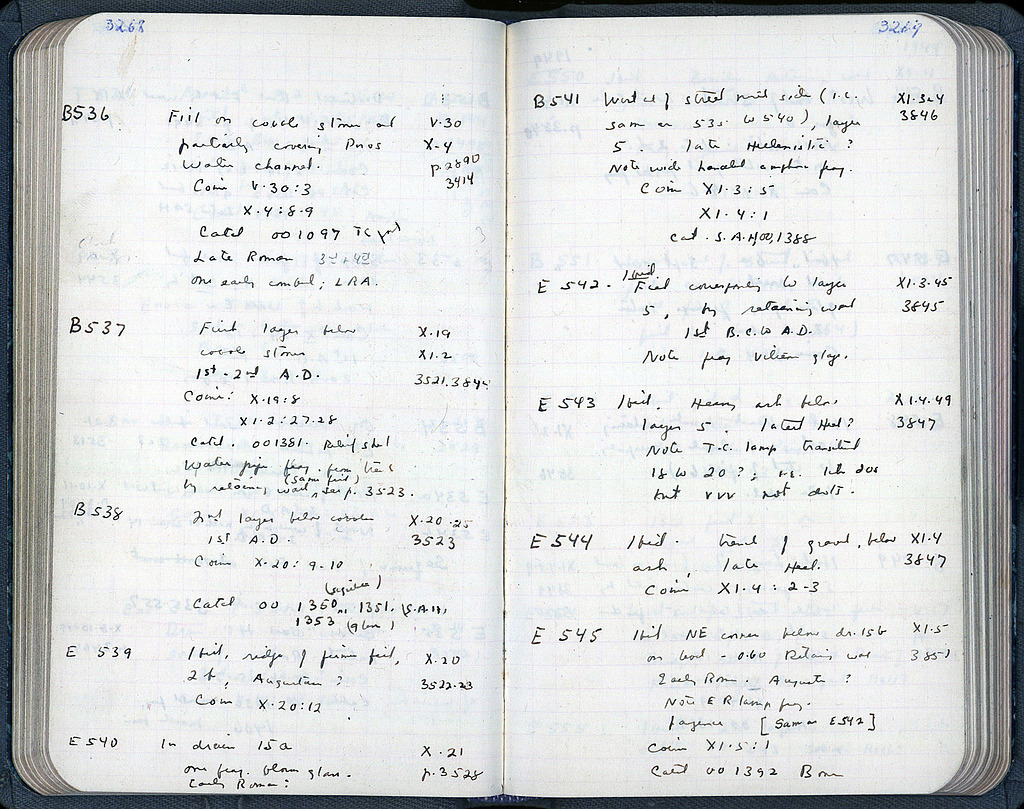 3268
B536 Fill on cobble stones and V.30
partially covering Pnos X-4
Water channel. p.2890
3414
Coin V.30:3
X.4:8-9
Catd 001097 TC
Late Roman 3rd + 4th
one early combed; LRA.
B537 First layer below X.19
cobble stones X1.2
1st - 2nd A.D. 3521.3844
Coins: X.19:8
X1.2:27.28
Catd. 001381. Relief
Water pipe frag. from
(same fill)
by retaining wall, see p. 3523.
B538 2nd layer below cobble X.20.25
1st A.D. 3523
Coin X.20:9-10
Catd 00 1350, 1351, (S.A.H)
1353 (glass)
E 539 Ibid, ridge of firm fill, X.20
Augustan? 3522-23
Coin X.20:12
E 540 In drain 15a X.21
one frag. blown glass. p.3528
Early Roman?
3269
B541 West of street north side (i.e. X1.3-4
same as 535 to 540), layer 3846
5 late Hellenistic?
Note wide handled amphora frag.
Coin X1.3:5
X1.4:1
cat. S.A.H 00,1388
Ibid
E 542. Fill corresponding to layer X1.3.45
5, by retaining wall 3845
1st B.C. to A.D.
Note frag
E 543 Ibid. Heavy ash below X1.4.49
layer 5. latest Hell? 3847
Note T.C. lamp
18 to 20?; i.e. with dots
but vvv not dots.
E 544 Ibid. of gravel, below X1.4
ash, late Hell. 3847
Coin X1.4:2-3
E 545 Ibid NE corner below dr.15b X1.5
on - 0.60 Retaining wall 3851
Early Rom. Augustan?
Note E R lamp frag.
[Same as E542]
Coin X1.5:1
Catd 001392